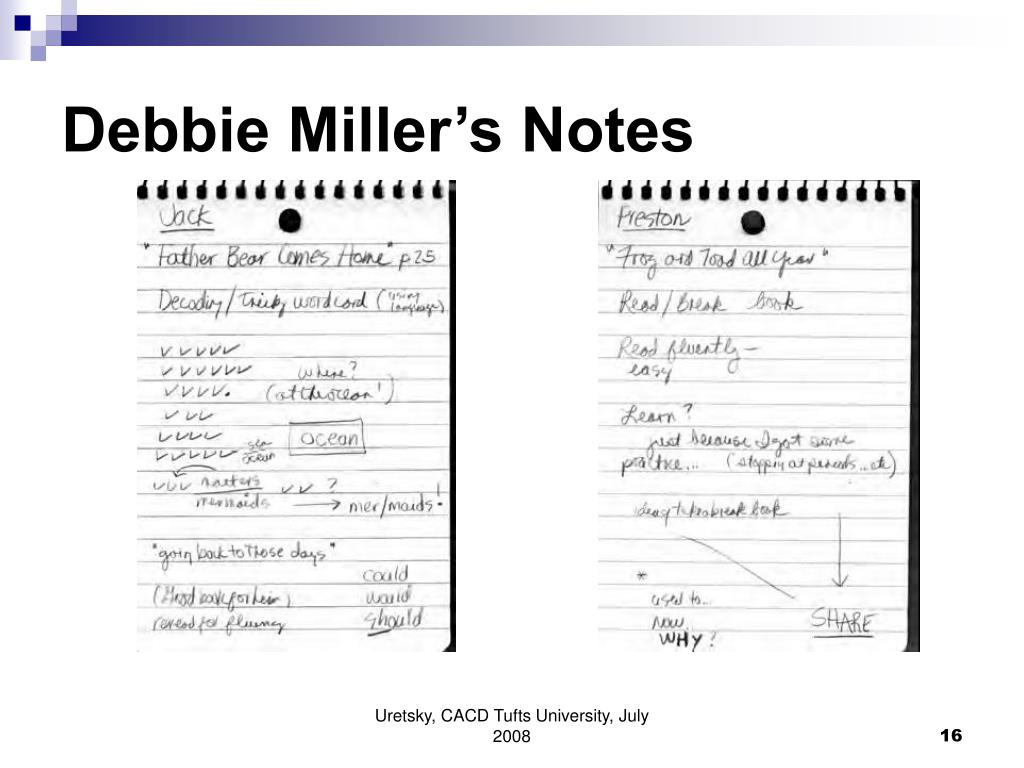 Debbie Miller’s Notes
Jack
"Father Bear Comes Home" p 25
Decoding/Tricky word card (using language)
✓ ✓ ✓ ✓ ✓
✓ ✓ ✓ ✓ ✓ ✓ where?
✓ ✓ ✓ ✓. (at the ocean!)
✓ ✓ ✓
✓ ✓ ✓ ✓ ocean
✓ ✓ ✓ ✓ ✓ sea
ocean
✓ ✓ ✓ matters ✓ ✓ ?
mermaids → mer/maids!
"goin back to those days"
could
(Good book for him) would
reread for fluency should
Preston
"Frog and Toad All Year"
Read/Break book
Read fluently –
easy
Learn?
just because I got some
practice... (stopping at periods...etc)
break book
*
used to...
now
WHY?
SHARE
Uretsky, CACD Tufts University, July
2008
16